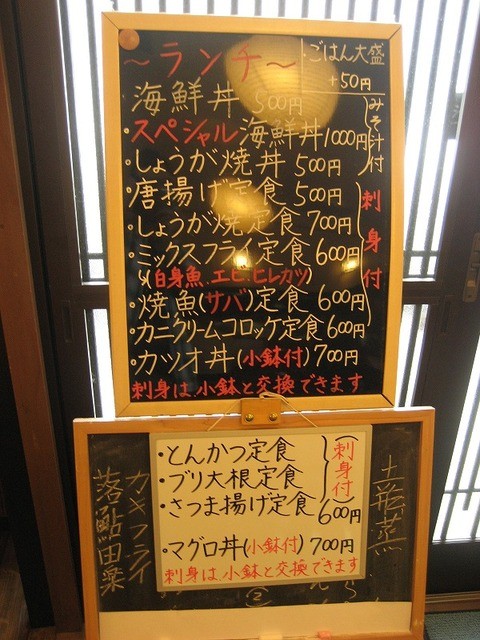 ～ランチ～
・ごはん大盛
+50円
海鮮丼 500円
・スペシャル海鮮丼 1000円
・しょうが焼丼 500円
みそ汁付
・唐揚げ定食 500円
・しょうが焼定食 700円
・ミックスフライ定食 600円
(白身魚.エビ.ヒレカツ)
・焼魚(サバ)定食 600円
・カニクリームコロッケ定食 600円
刺身付
・カツオ丼(小鉢付) 700円
刺身は、小鉢と交換できます
・とんかつ定食
・ブリ大根定食
・さつま揚げ定食
(刺身付)
600円
・マグロ丼(小鉢付) 700円
刺身は、小鉢と交換できます
カキフライ
落鮎田楽
土瓶蒸
②